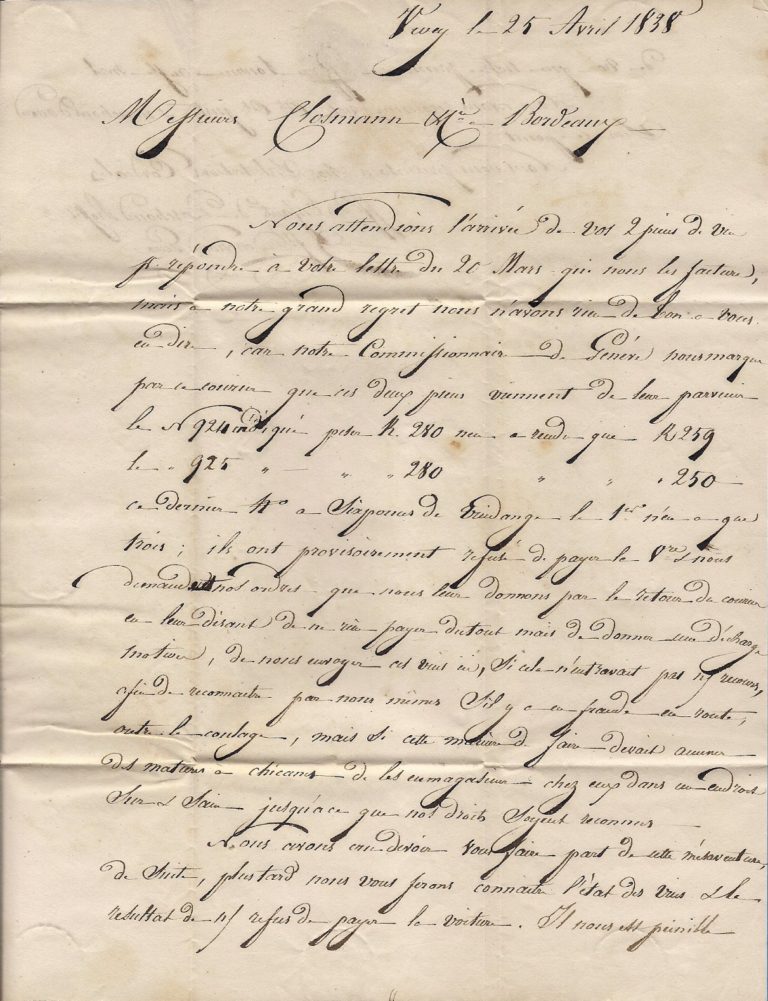 Vevey le 25 Avril 1838
Messieurs Closmann & Cie Bordeaux
Nous attendions l'arrivée de vos 2 pieces de vin
pr répondre à votre lettre du 20 Mars qui nous les facture,
mais à notre grand regret nous n'avons rien de bon a vous
en dire, car notre Commissionnair de Genève nous marque
par ce courrier que ces deux pieces viennent de leur parvenir
le No 924 indiqué peser K. 280 n'en a rendu que K 259
le " 925 " — " " 280 " " " 250 —
ce dernier No a Six pouces de vuidange le 1er n'en a que
trois; ils ont provisoirement refusé de payer le Vre & nous
demandent nos ordres que nous leur donnons par le retour du courrier
en leur disant de ne rien payer du tout mais de donner une décharge
motivée, de nous envoyer ces vins ici, Si cela n'entravait pas n/ recours,
afin de reconnaitre par nous mêmes S'il y a eu fraude en route,
outre le coulage, mais Si cette maniere d faire devait amener
ds matieres a chicanes de les emmagasiner chez eux dans un endroit
Sur & Sain jusqu'a ce que nos droits Soyent reconnus —
Nous avons cru devoir vous faire part de cette mésaventure,
de Suite, plus tard nous vous ferons connaitre l'état des vins & le
resultat de n/ refus de payer la voiture. Il nous est penible